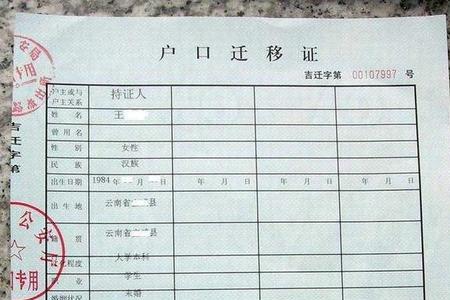 户口迁移证
吉迁字第 00107997 号
户主或与
户主关系 持证人
姓名 王
曾用名
性别 女性
民族 汉族
出生日期 1984 年 月 日 年 月 日 年 月 日 年 月 日
出生地 云南省 县
籍贯 云南省 县
文化程度 大学本科
业 学生
婚姻状况 未婚
吉迁字第
专用
公安厅
专用